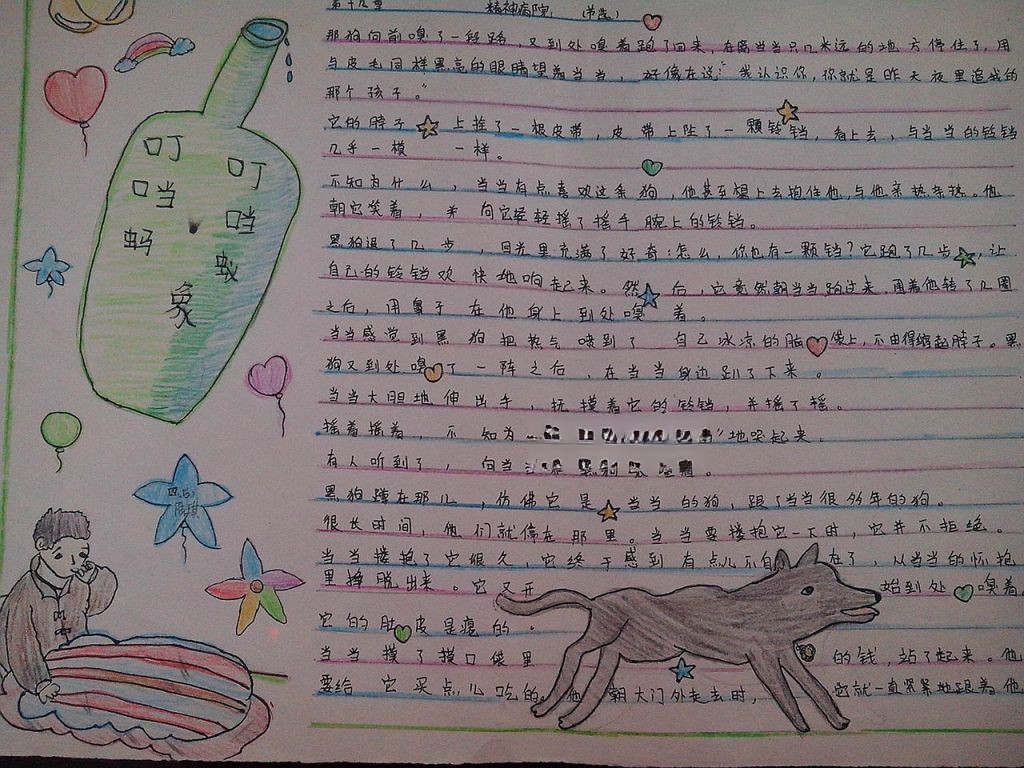 第十九章 精神病院 (节选)
那狗向前嗅了一段路，又到处嗅着跑了回来，在离当当只几米远的地方停住了，用
与皮毛同样黑亮的眼睛望着当当，好像在说："我认识你，你就是昨天夜里追我的
那个孩子。"
它的脖子上拴了一根皮带，皮带上坠了一颗铃铛，看上去，与当当的铃铛
几乎一模一样。
不知为什么，当当有点喜欢这条狗，他甚至想上去抱住他，与他亲热亲热。他
朝它笑着，并向它轻轻摇了摇手腕上的铃铛。
黑狗退了几步，目光里充满了好奇：怎么，你也有一颗铛？它跑了几步，让
自己的铃铛欢快地响起来。然后，它竟然朝当当跑过来，围着他转了几圈
之后，用鼻子在他身上到处嗅着。
当当感觉到黑狗把热气喷到了自己冰凉的脑袋上，不由得缩起脖子。黑
狗又到处嗅了一阵之后，在当当身边趴了下来。
当当大胆地伸出手，抚摸着它的铃铛，并摇了摇。
摇着摇着，不知为"地哭起来，
有人听到了，向当。
黑狗蹲在那儿，仿佛它是当当的狗，跟了当当很多年的狗。
很长时间，他们就停在那里。当当要搂抱它一下时，它并不拒绝。
当当搂抱了它很久，它终于感到有点儿不自在了，从当当的怀抱
里挣脱出来。它又开始到处嗅着
它的肚皮是瘪的。
当当摸了摸口袋里的钱，站了起来。他
要给它买点儿吃的。他朝大门外走去时，它就一直紧紧地跟着他
叮 叮
当 当
蚂 蚁
象
四(5)